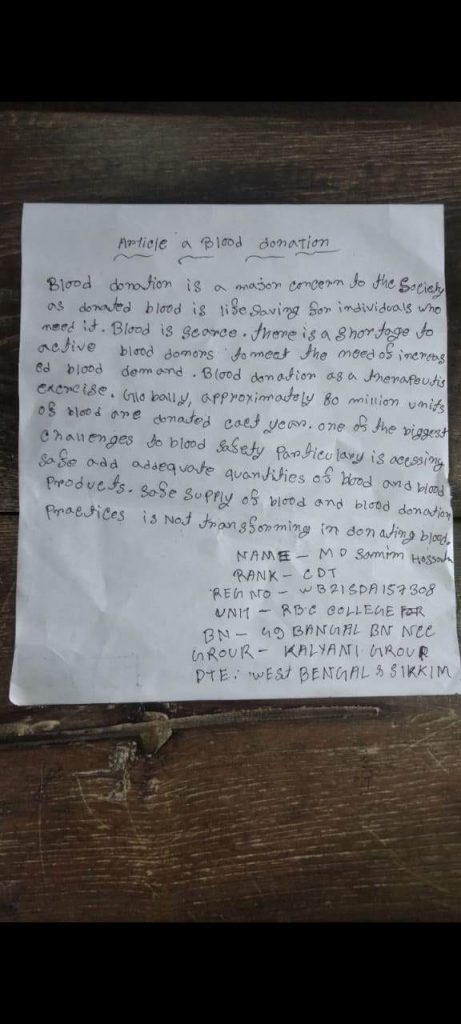 Article a Blood donation
Blood donation is a major concern to the Society
as donated blood is life saving for individuals who
need it. Blood is scarce. there is a shortage to
active blood donors to meet the need of increas
ed blood demand. Blood donation as a therapeutis
exercise. Globally, approximately 80 million units
of blood are donated each year. one of the biggest
challenges to blood safety particulary is acessing
safe add adsequate quantities of blood and blood
products. safe supply of blood and blood donation
Practices is Not transfomming in donating blood.
NAME - MD Samim Hossain
RANK - CDT
REG NO - WB21SDA157308
UNIT - RBC COLLEGE FOR
BN - 49 BANGAL BN NCC
GROUR - KALYANI GROUP
DTE: WESt BENGAL & SIKKIM